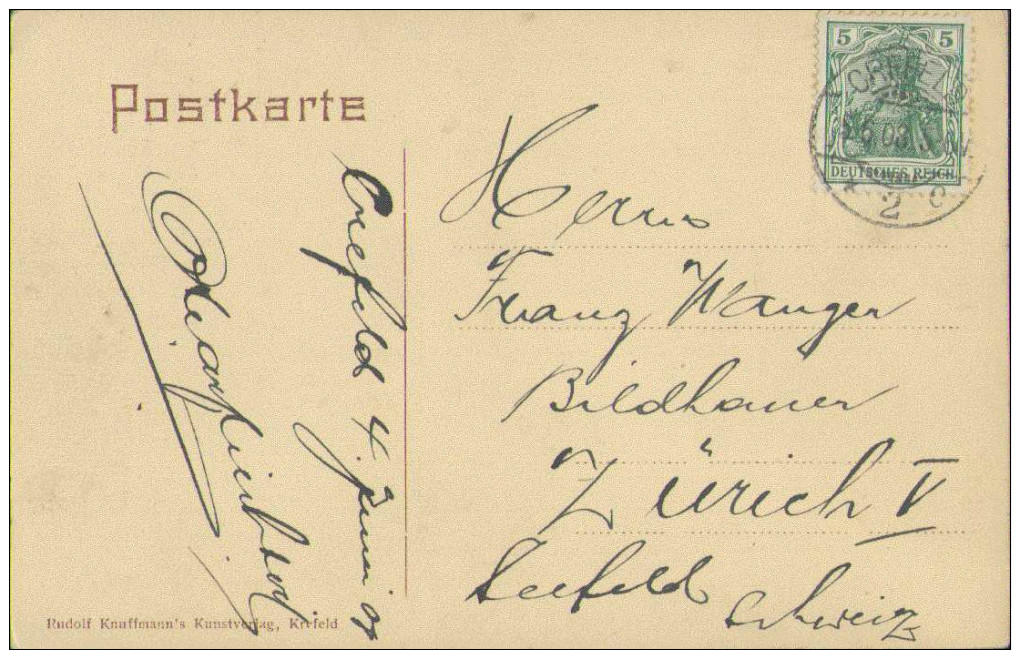 Postkarte
5 5
DEUTSCHES REICH
CREFELD
5.6.08
* 2 c
Crefeld 4. Juni 08
Herrn
Franz Wanger
Bildhauer
Zürich V
Seefeld
Schweiz
Rudolf Knuffmann's Kunstverlag, Krefeld